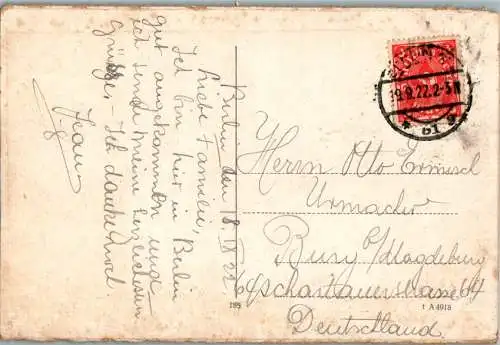 Berlin den 18. IX 22
Liebe Familie,
Ich bin hier in Berlin
gut angekommen und
ich sende meine herzlichsten
Grüsse - Ich danke
19.9.22.2-3N
Herrn Otto
Urmacher
Burg b/Magdeburg
Schartauerstrasse 64
Deutschland.
195
t A 4918